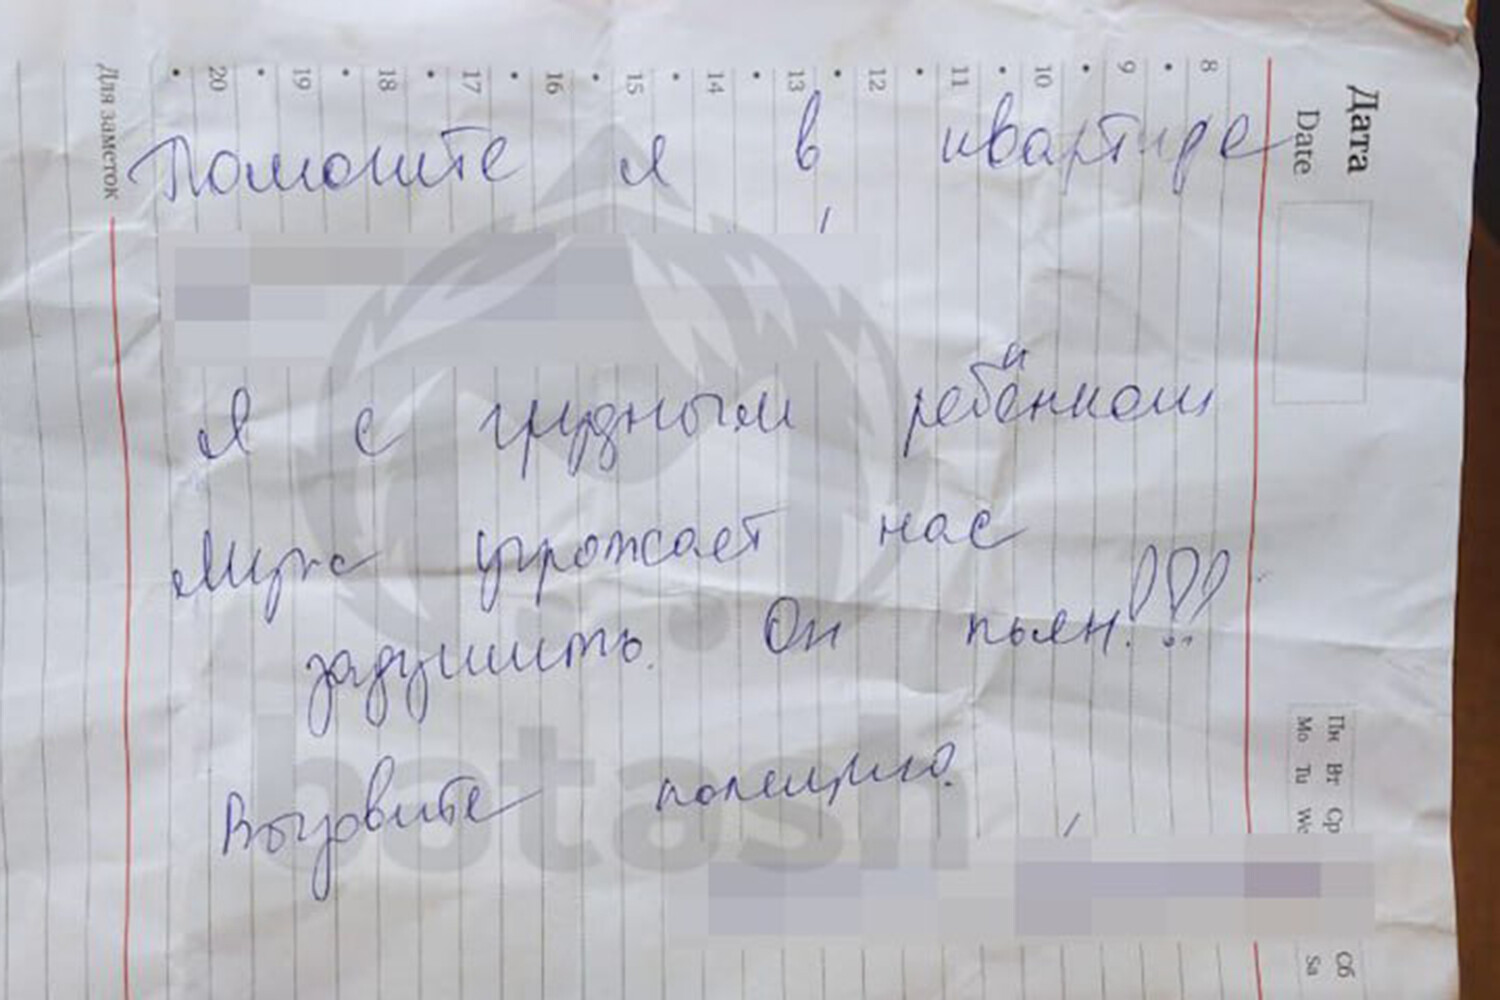 Помогите я в квартире
Я с грудным ребёнком
Муж угрожает нас
задушить. Он пьян!!!
Вызовите полицию.
Дата
Date
8
9
10
11
12
13
14
15
16
17
18
19
20
Для заметок
Пн Вт Ср Сб
Mo Tu We Sa
batash